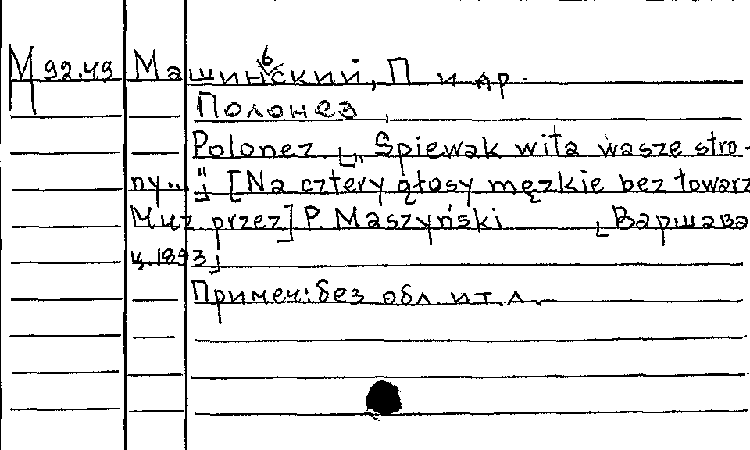 М 92.49 Машинский, П и др.
Полонез
Polonez. [„Spiewak wita wasze stro-
ny..."] [Na cztery głosy męzkie bez towarz
Muz. przez] P. Maszyński [Варшава
ц. 1893]
Примеч: без обл. и т. л.